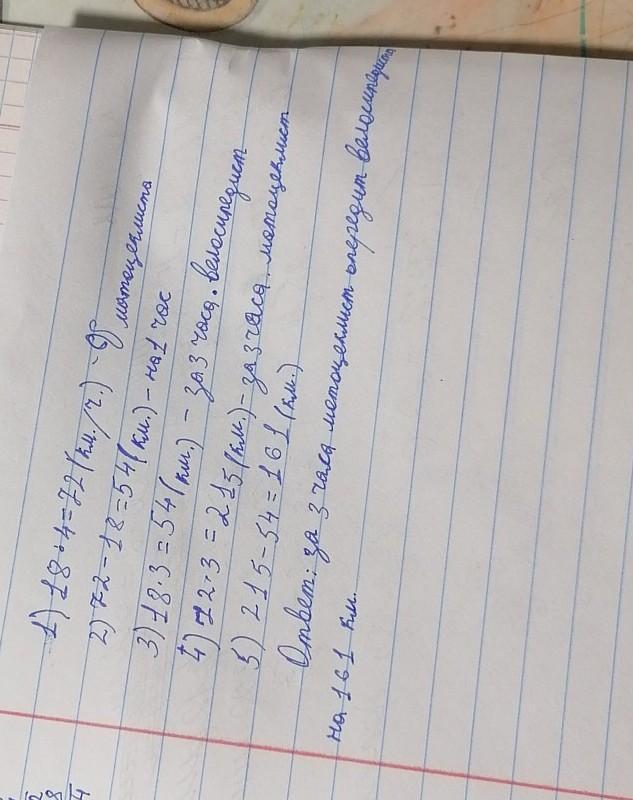 1) 18·4=72(км./ч.) - υ мотоциклиста
2) 72-18=54(км.) - на 1 час
3) 18·3=54(км.) - за 3 часа. велосипедист
4) 72·3=215(км.) - за 3 часа. мотоциклист
5) 215-54=161(км.)
Ответ: за 3 часа мотоциклист опередит велосипедиста
на 161 км.